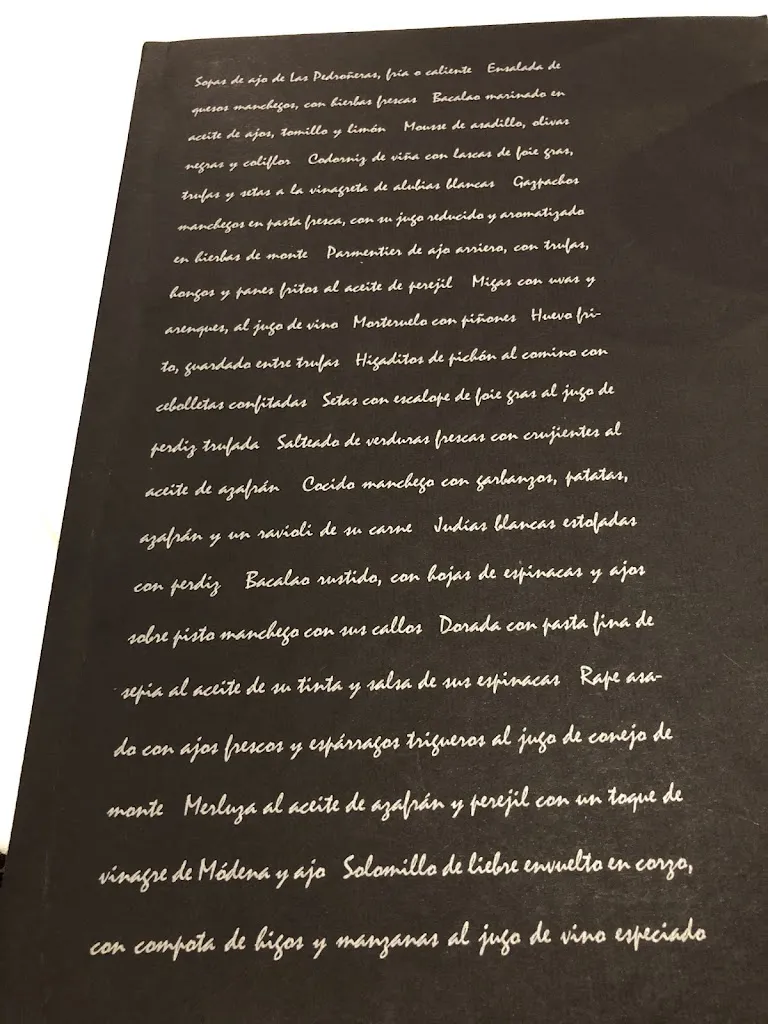 Sopas de ajo de Las Pedroñeras, fría o caliente Ensalada de
quesos manchegos, con hierbas frescas Bacalao marinado en
aceite de ajos, tomillo y limón Mousse de asadillo, olivas
negras y coliflor Codorniz de viña con lascas de foie gras,
trufas y setas a la vinagreta de alubias blancas Gazpachos
manchegos en pasta fresca, con su jugo reducido y aromatizado
en hierbas de monte Parmentier de ajo arriero, con trufas,
hongos y panes fritos al aceite de perejil Migas con uvas y
arenques, al jugo de vino Morteruelo con piñones Huevo fri-
to, guardado entre trufas Higaditos de pichón al comino con
cebolletas confitadas Setas con escalope de foie gras al jugo de
perdiz trufada Salteado de verduras frescas con crujientes al
aceite de azafrán Cocido manchego con garbanzos, patatas,
azafrán y un ravioli de su carne Judías blancas estofadas
con perdiz Bacalao rustido, con hojas de espinacas y ajos
sobre pisto manchego con sus callos Dorada con pasta fina de
sepia al aceite de su tinta y salsa de sus espinacas Rape asa-
do con ajos frescos y espárragos trigueros al jugo de conejo de
monte Merluza al aceite de azafrán y perejil con un toque de
vinagre de Módena y ajo Solomillo de liebre envuelto en corzo,
con compota de higos y manzanas al jugo de vino especiado